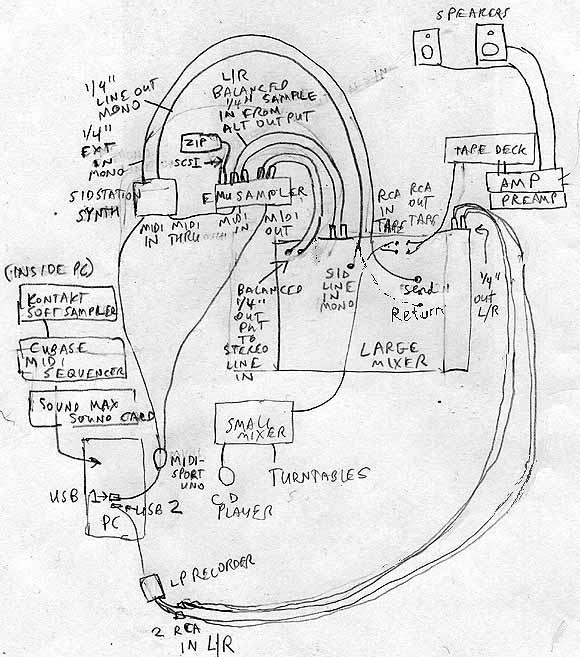 SPEAKERS
L/R
BALANCED
1/4" SAMPLE
IN FROM
ALT OUTPUT
1/4"
LINE OUT
MONO
1/4"
EXT
IN
MONO
ZIP
SCSI
TAPE DECK
AMP
PREAMP
SIDSTATION
SYNTH
EMU SAMPLER
RCA
IN
TAPE
RCA
OUT
TAPE
MIDI
IN
MIDI
THRU
MIDI
IN
MIDI
OUT
(INSIDE PC)
KONTAKT
SOFTSAMPLER
CUBASE
MIDI
SEQUENCER
SOUND MAX
SOUND CARD
BALANCED
1/4"
OUT
PUT
TO
STEREO
LINE
IN
SID
LINE
IN
MONO
Send
Return
1/4"
OUT
L/R
LARGE
MIXER
SMALL
MIXER
MIDI-
SPORT
UNO
CD
PLAYER
TURNTABLES
USB 1
USB 2
PC
LP RECORDER
2 RCA
IN L/R